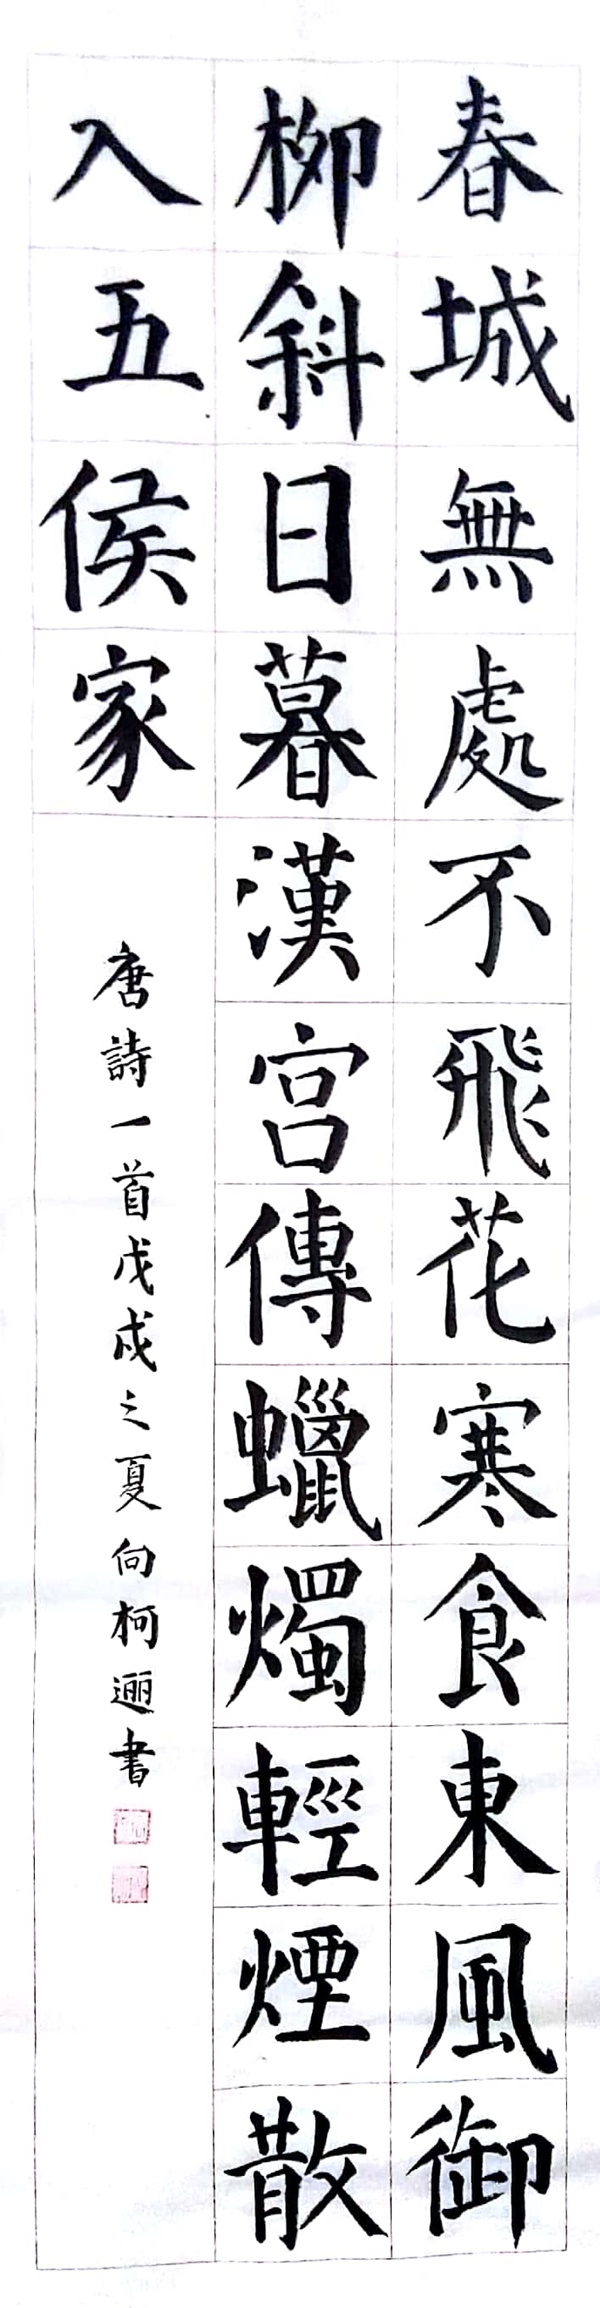 春城無處不飛花寒食東風御
柳斜日暮漢宮傳蠟燭輕煙散
入五侯家
唐詩一首戊戌之夏向柯逦書